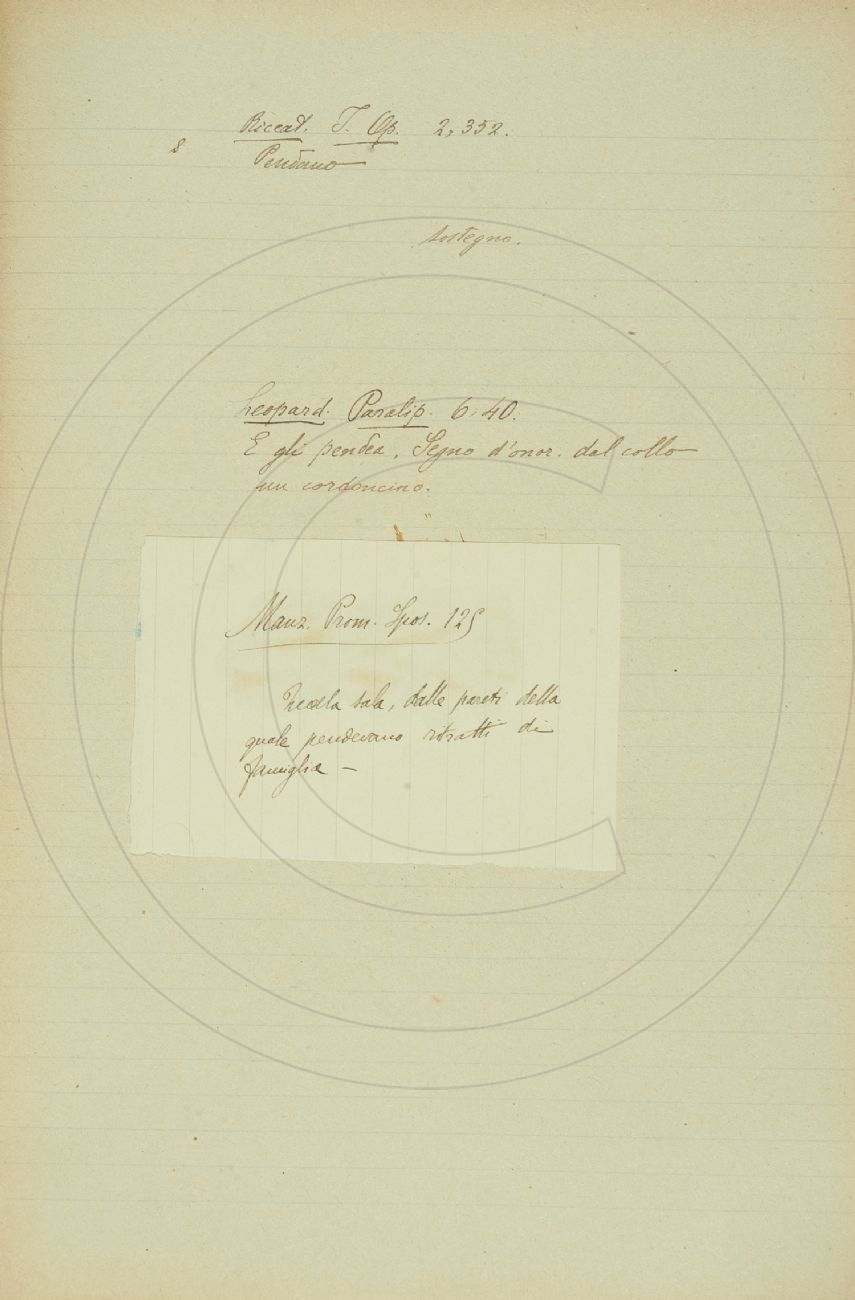 Riccat. J. Op. 2, 352.
s
Pendano
sostegno.
Leopard. Paralip. 6. 40.
E gli pendea, Segno d'onor. dal collo
un cordoncino.
Manz. Prom. Spos. 125
sala, dalle pareti della
quale pendevano ritratti di
famiglia —